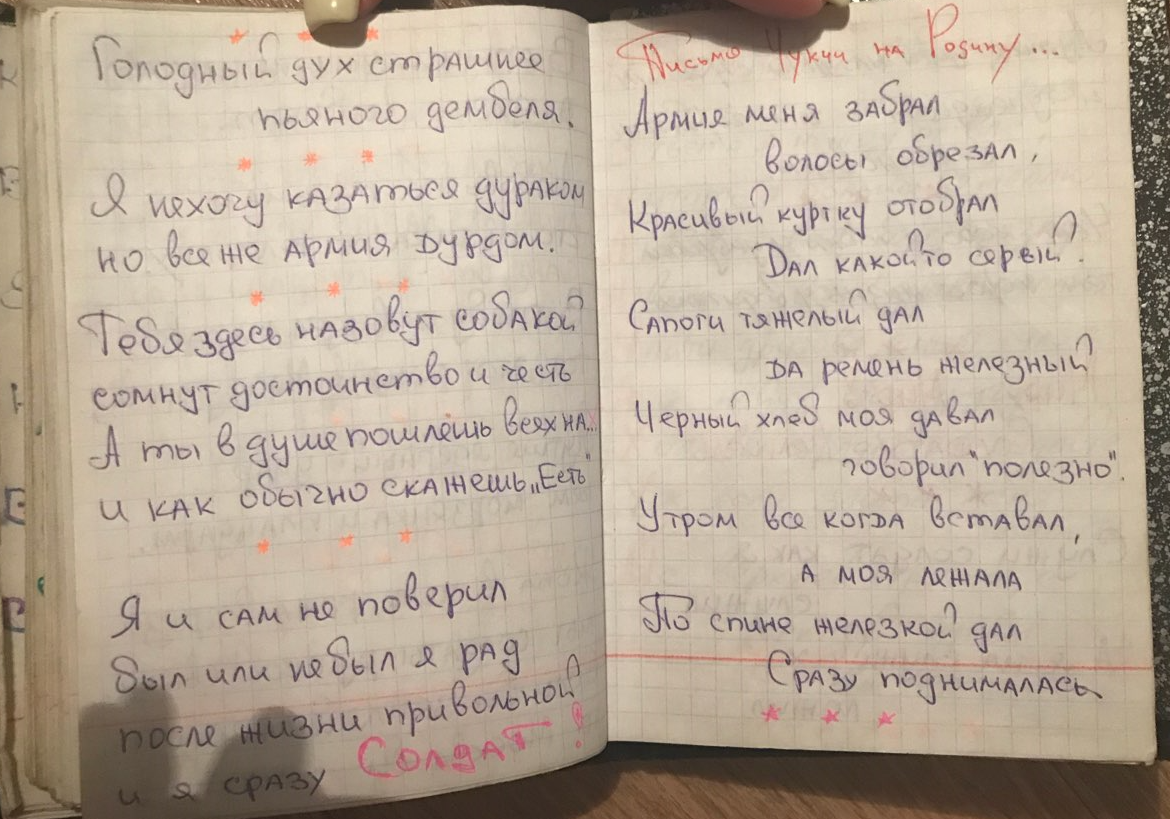 Голодный дух страшнее
пьяного дембеля.
Я нехочу казаться дураком
но все же армия дурдом.
Тебя здесь назовут собакой
сомнут достоинство и честь
А ты в душе пошлёшь всех на..
и как обычно скажешь „Есть"
Я и сам не поверил
был или небыл я рад
после жизни привольной
и я сразу Солдат!
Письмо Чукчи на Родину...
Армия меня забрал
волосы обрезал,
Красивый куртку отобрал
Дал какойто серый.
Сапоги тяжелый дал
да ремень железный
Черный хлеб моя давал
говорил "полезно".
Утром все когда вставал,
а моя лежала
По спине железкой дал
Сразу поднималась